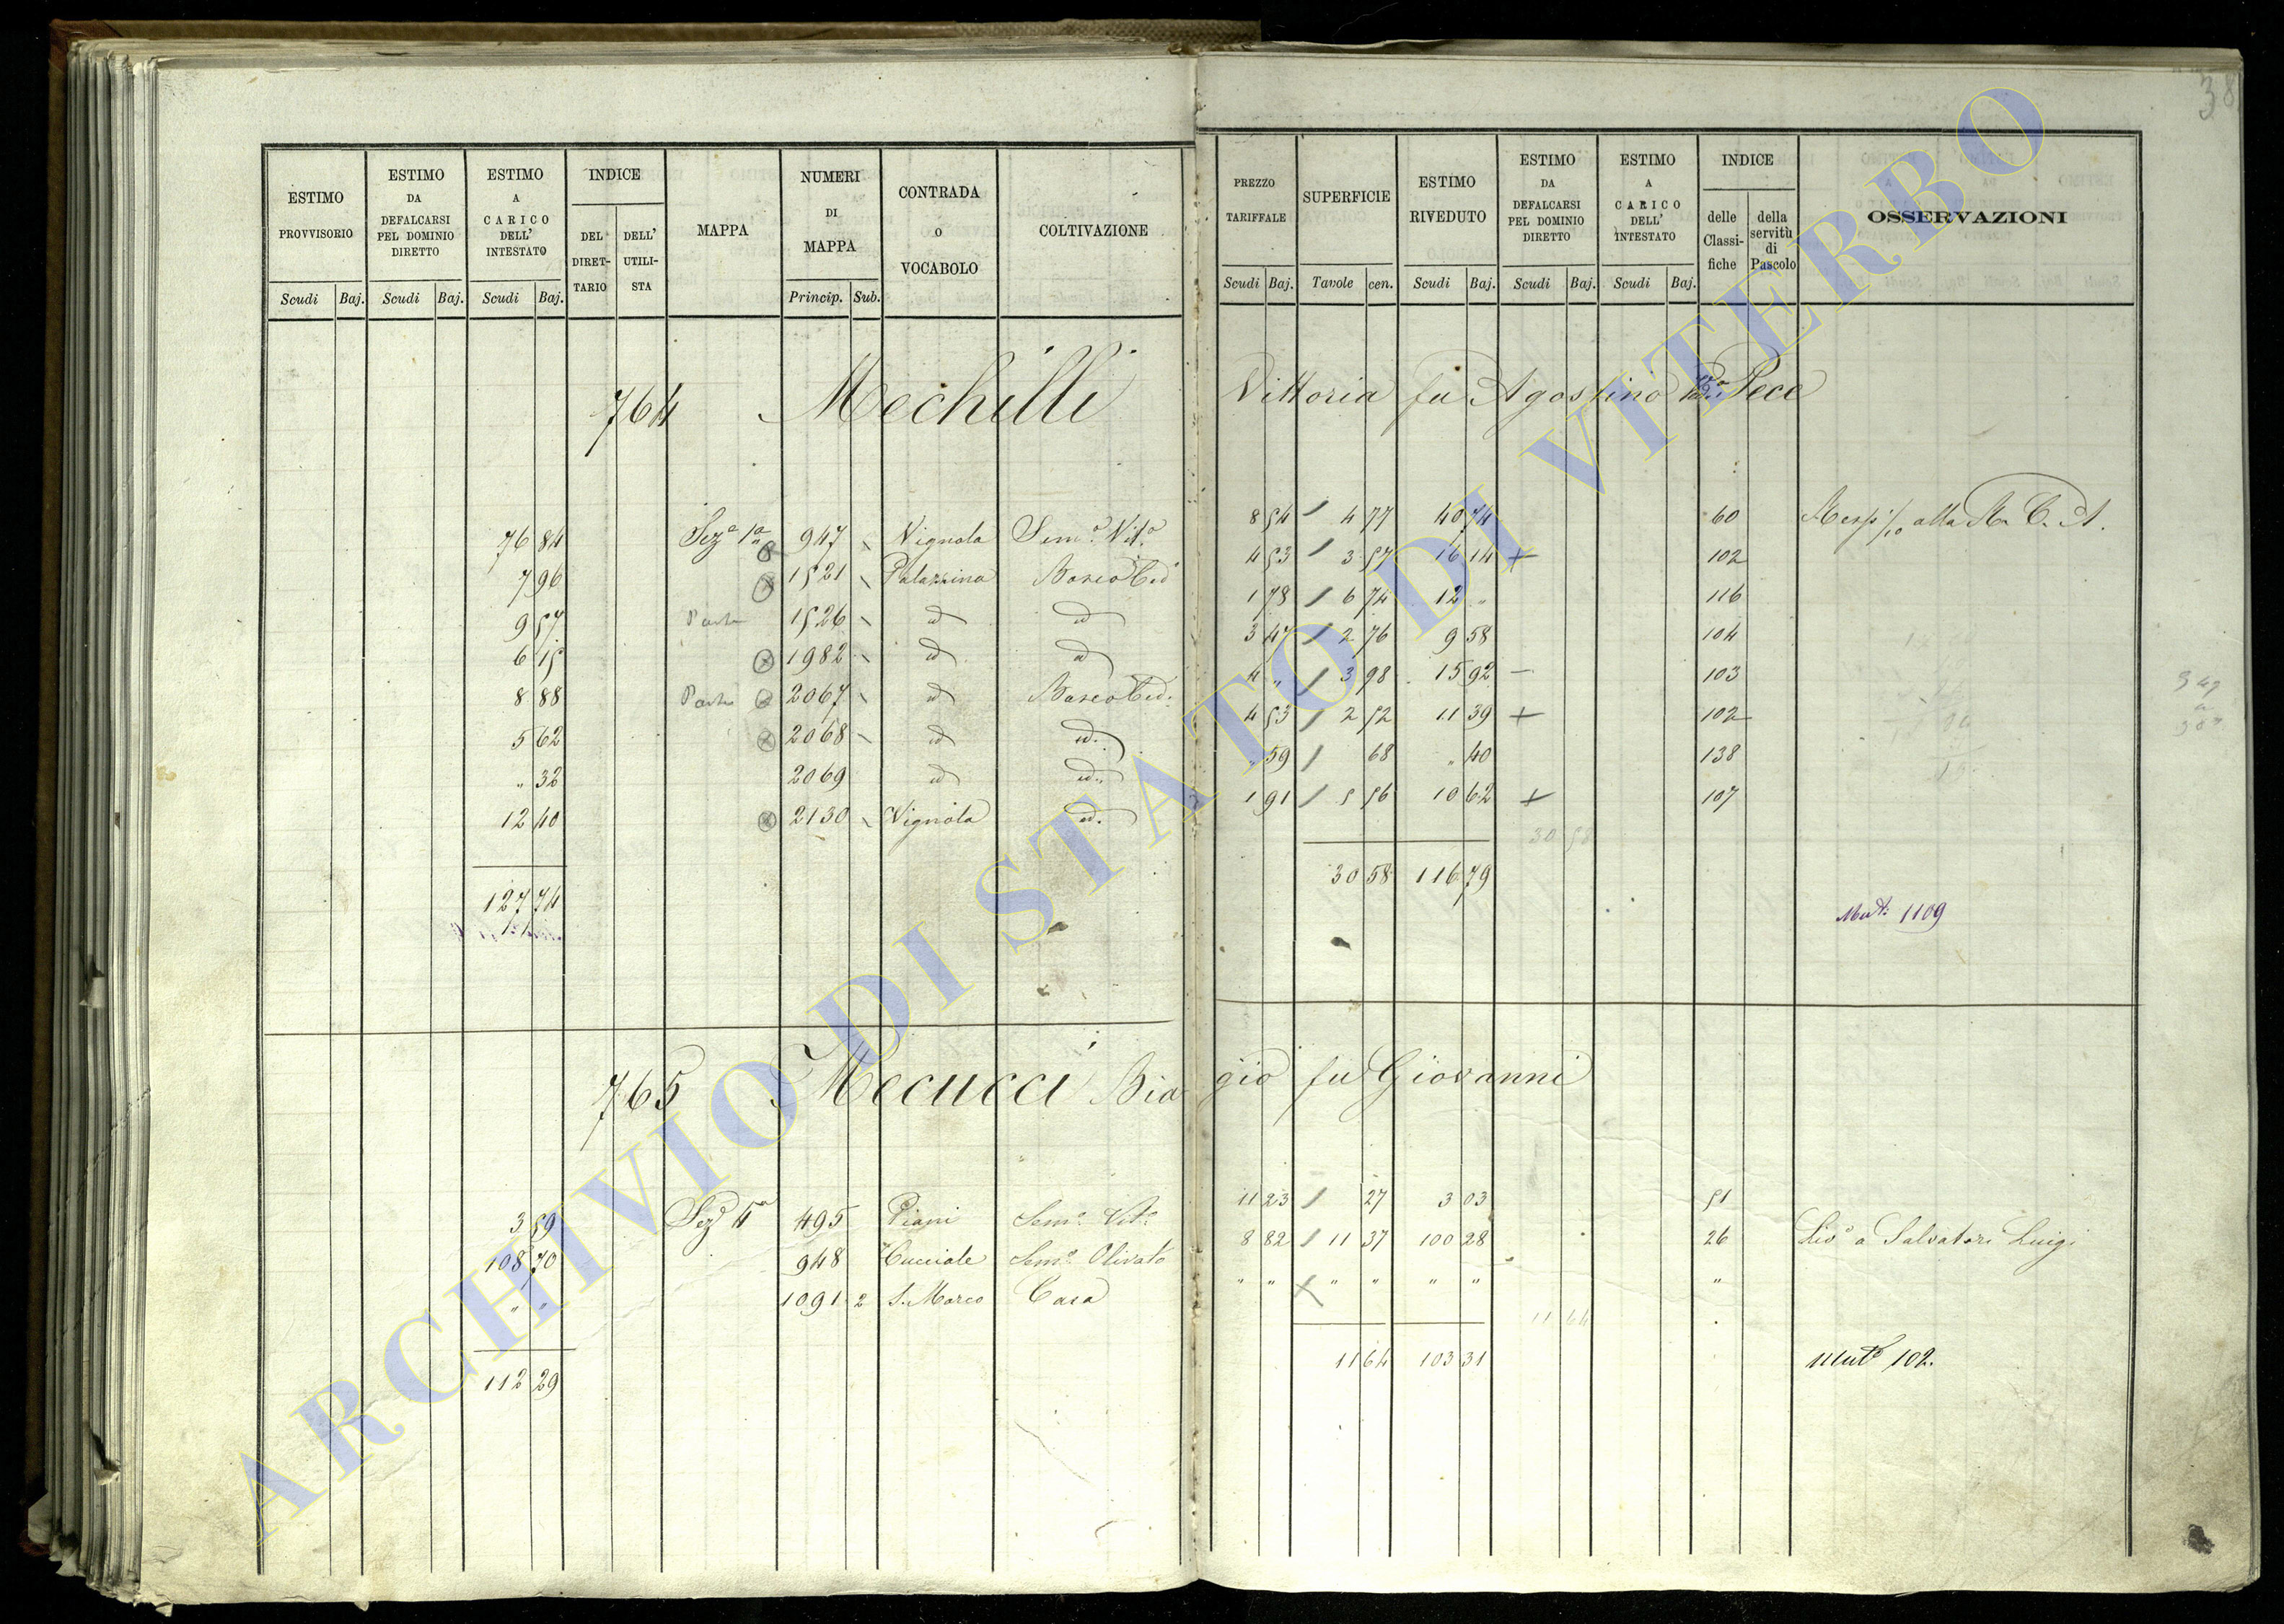 38
ESTIMO PROVVISORIO Scudi Baj.
ESTIMO DA DEFALCARSI PEL DOMINIO DIRETTO Scudi Baj.
ESTIMO A CARICO DELL' INTESTATO Scudi Baj.
INDICE DEL DIRET-TARIO DELL' UTILI-STA
MAPPA
NUMERI DI MAPPA Princip. Sub.
CONTRADA O VOCABOLO
COLTIVAZIONE
PREZZO TARIFFALE Scudi Baj.
SUPERFICIE Tavole cen.
ESTIMO RIVEDUTO Scudi Baj.
ESTIMO DA DEFALCARSI PEL DOMINIO DIRETTO Scudi Baj.
ESTIMO A CARICO DELL' INTESTATO Scudi Baj.
INDICE delle Classi-fiche della servitù di Pascolo
OSSERVAZIONI
764 Mechilli Vittoria fu Agostino Pece
76 84 Sez.e 1a 947 Vignola Sem.o Vit.o 8 54 4 77 40 74 60 alla R. C. A.
7 96 1521 Palazzina Bosco Ced 4 53 3 57 16 14 + 102
9 57 Parte 1526 id id 1 78 6 74 12 " 116
6 15 1982 id id 3 47 2 76 9 58 104
8 88 Parte 2067 id Bosco Ced. 4 " 3 98 15 92 – 103
5 62 2068 id id. 4 53 2 52 11 39 + 102
" 32 2069 id id. " 59 68 " 40 138
12 40 2130 Vignola id. 1 91 5 56 10 62 + 107
30 58
127 74 30 58 116 79
Mut: 1109
765 Mecucci Biagio fu Giovanni
3 59 Sez.e 1a 495 Piani Sem.o Vit.o 11 23 27 3 03 51
108 70 948 Cucciale Sem.o Olivato 8 82 11 37 100 28 26 Liv.o a Salvatori Luigi
" " 1091 2 S. Marco Casa " " × " " " " "
11 64
112 29 11 64 103 31 Mut.e 102.
ARCHIVIO DI STATO DI VITERBO